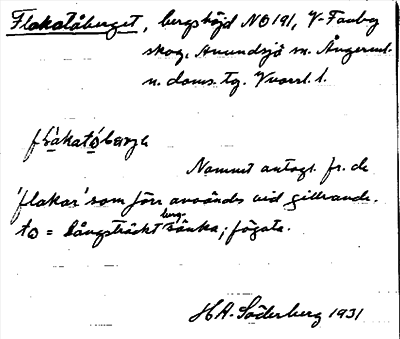 Flakatåberget, bergshöjd NO 191, V-Fanbyg
skog, Anundsjö sn. Ångerml.
n. doms. tg. Vnorrl. l.
flakatåbärje
Namnet antagl. fr. de
'flakar' som förr användes vid gillrande.
tå = långsträckt bergsänka; fågata.
H.A. Söderberg 1931